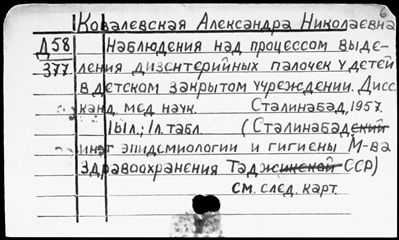 6
Ковалевская Александра Николаевна
Д58 Наблюдения над процессом выде-
377 ления дизентерийных палочек у детей
в детском закрытом учреждении. Дисс.
канд. мед. наук. Сталинабад, 1957.
161л.; 1л. табл. (Сталинабадский
инт эпидемиологии и гигиены М-ва
здравоохранения Таджикской ССР)
см. след. карт.